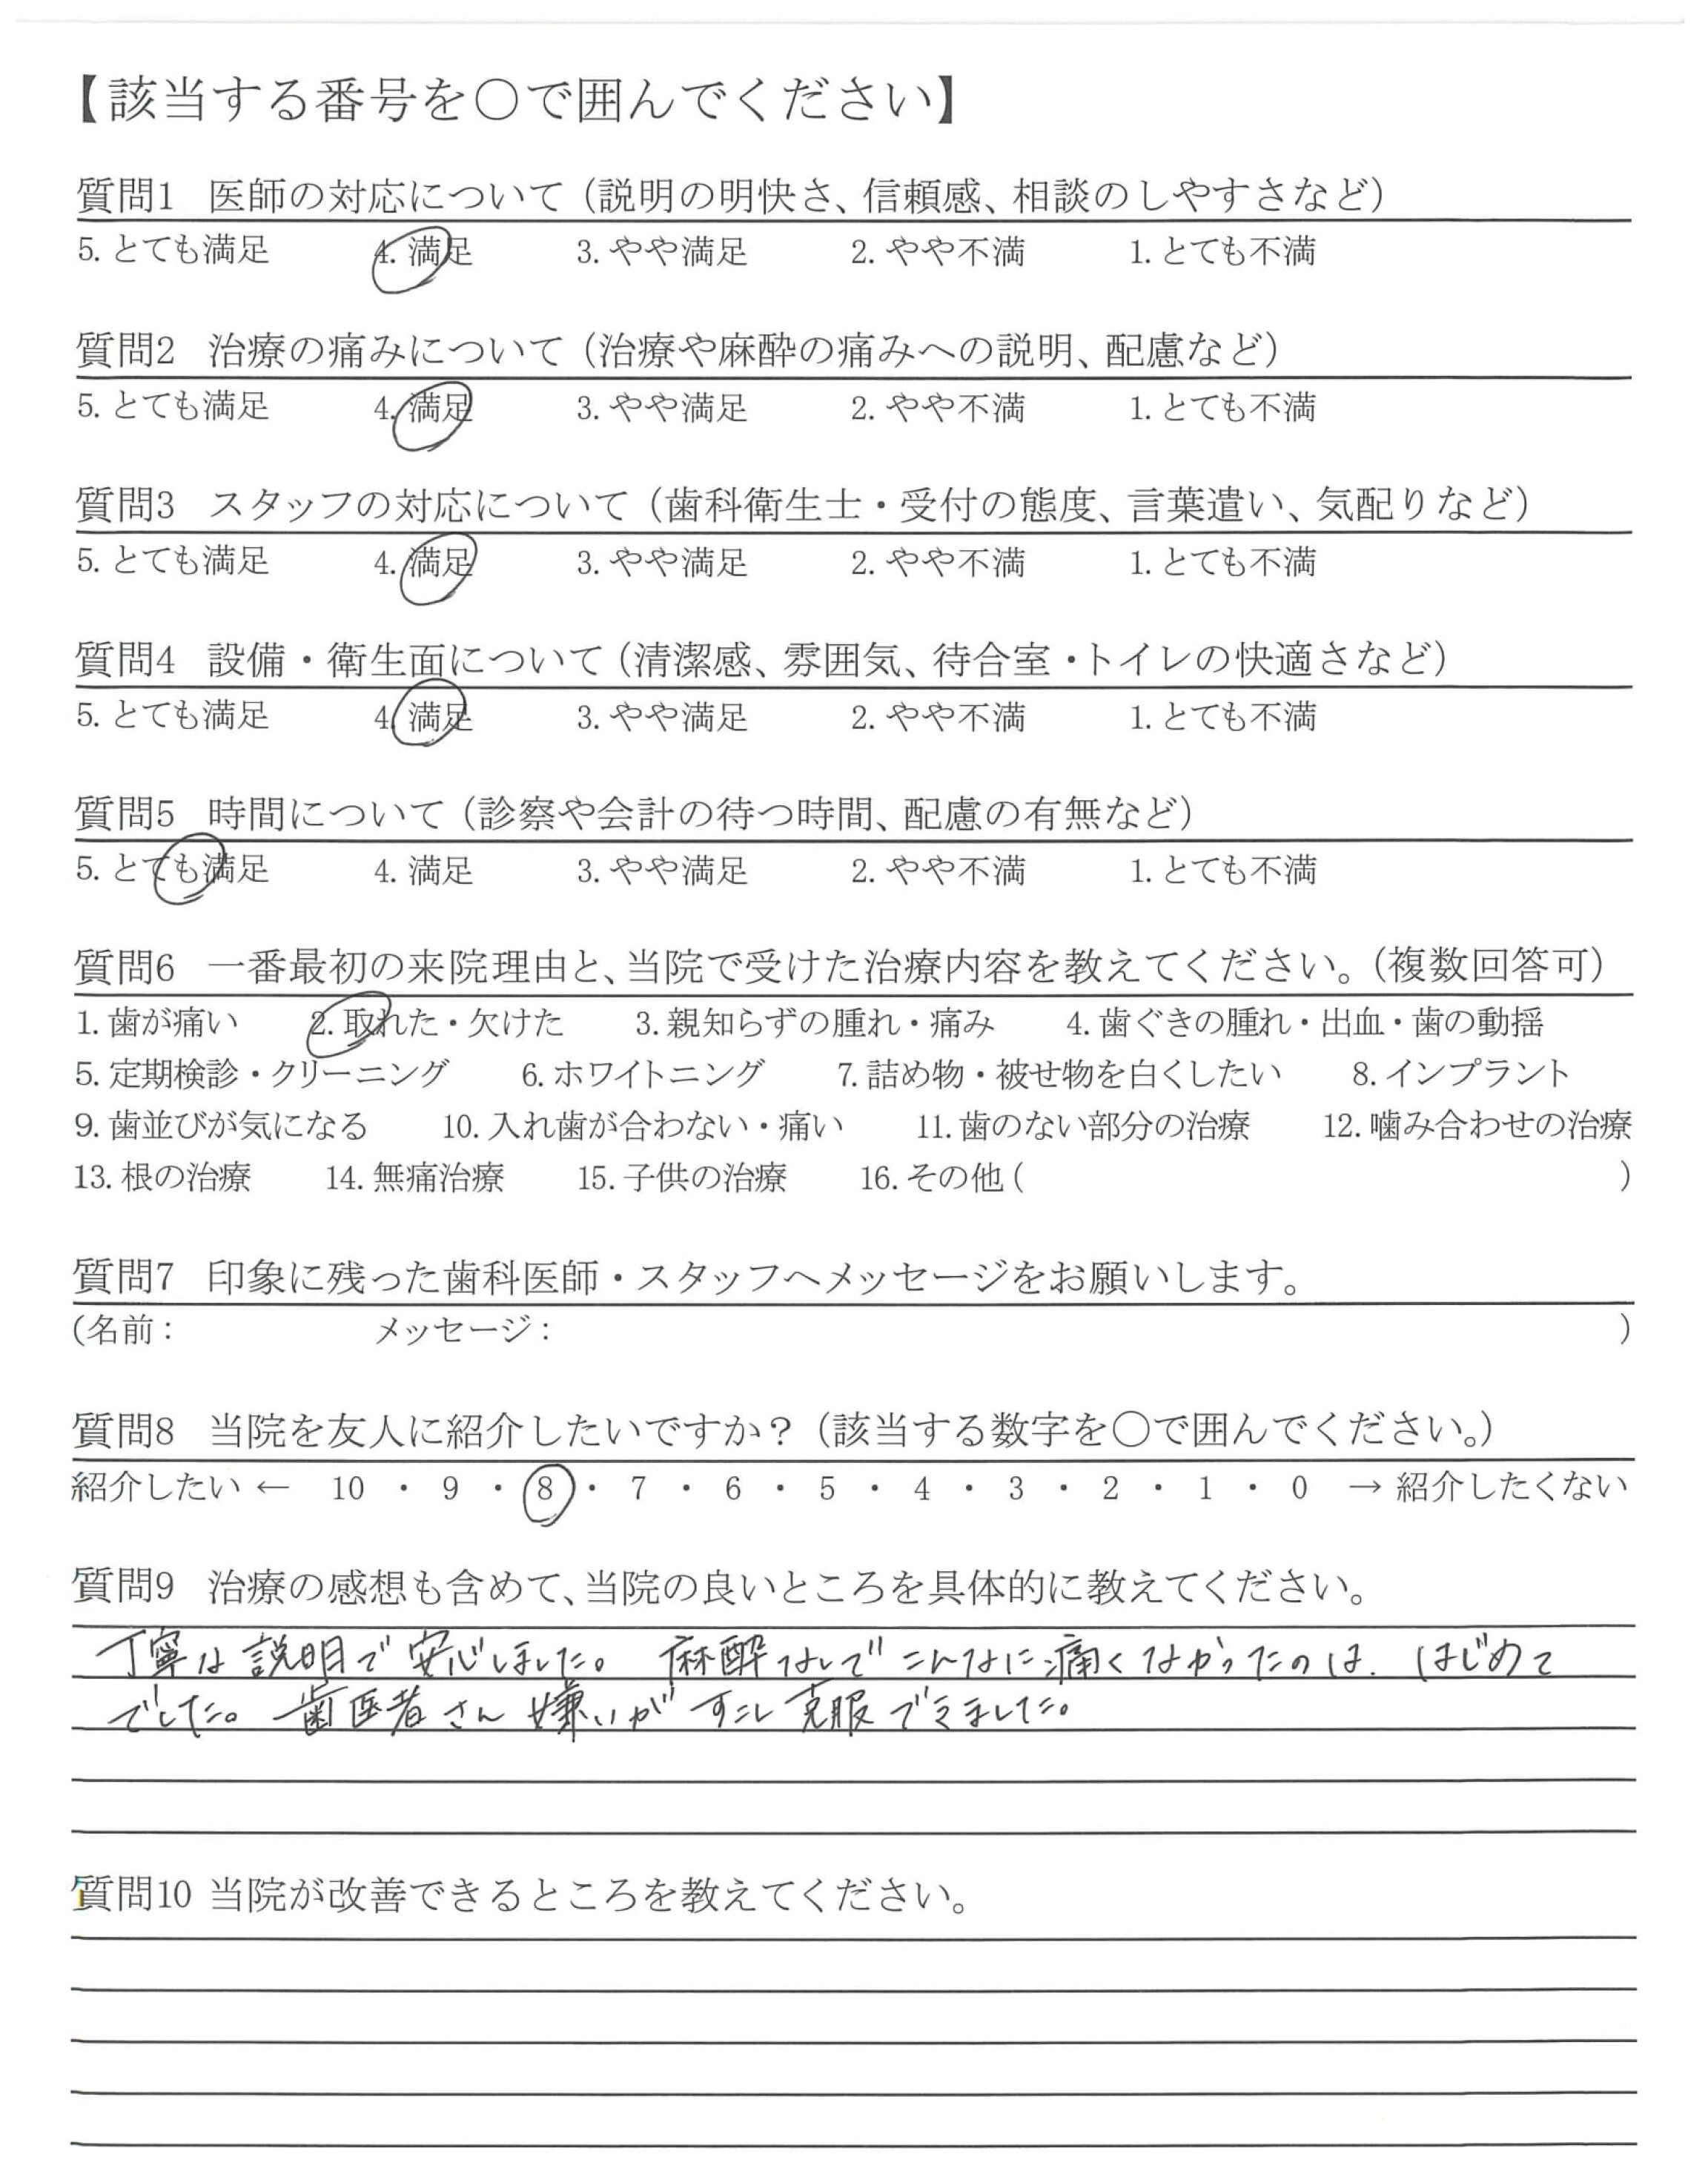 【該当する番号を○で囲んでください】
質問1 医師の対応について（説明の明快さ、信頼感、相談のしやすさなど）
5. とても満足 4. 満足 3. やや満足 2. やや不満 1. とても不満
質問2 治療の痛みについて（治療や麻酔の痛みへの説明、配慮など）
5. とても満足 4. 満足 3. やや満足 2. やや不満 1. とても不満
質問3 スタッフの対応について（歯科衛生士・受付の態度、言葉遣い、気配りなど）
5. とても満足 4. 満足 3. やや満足 2. やや不満 1. とても不満
質問4 設備・衛生面について（清潔感、雰囲気、待合室・トイレの快適さなど）
5. とても満足 4. 満足 3. やや満足 2. やや不満 1. とても不満
質問5 時間について（診察や会計の待つ時間、配慮の有無など）
5. とても満足 4. 満足 3. やや満足 2. やや不満 1. とても不満
質問6 一番最初の来院理由と、当院で受けた治療内容を教えてください。（複数回答可）
1. 歯が痛い 2. 取れた・欠けた 3. 親知らずの腫れ・痛み 4. 歯ぐきの腫れ・出血・歯の動揺
5. 定期検診・クリーニング 6. ホワイトニング 7. 詰め物・被せ物を白くしたい 8. インプラント
9. 歯並びが気になる 10. 入れ歯が合わない・痛い 11. 歯のない部分の治療 12. 噛み合わせの治療
13. 根の治療 14. 無痛治療 15. 子供の治療 16. その他 ( )
質問7 印象に残った歯科医師・スタッフへメッセージをお願いします。
（名前： メッセージ： ）
質問8 当院を友人に紹介したいですか？（該当する数字を○で囲んでください。）
紹介したい ← 10 ・ 9 ・ 8 ・ 7 ・ 6 ・ 5 ・ 4 ・ 3 ・ 2 ・ 1 ・ 0 → 紹介したくない
質問9 治療の感想も含めて、当院の良いところを具体的に教えてください。
丁寧な説明で安心しました。 麻酔なしでこんなに痛くなかったのは、はじめて
でした。歯医者さん嫌いがすこし克服できました。
質問10 当院が改善できるところを教えてください。